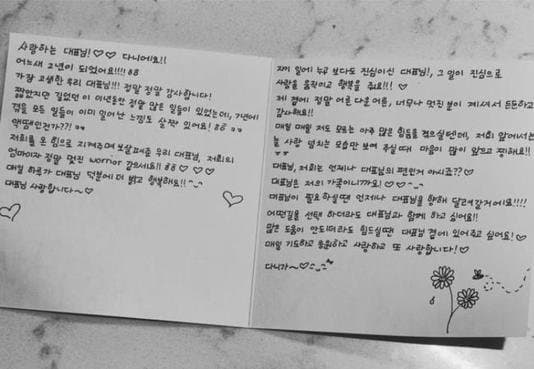 사랑하는 대표님!♡♡ 다니에요!!
어느새 2년이 되었어요!!!! ㅎㅎ
가장 고생한 우리 대표님!!! 정말 정말 감사합니다!
짧았지만 길었던 이 이년동안 정말 많은 일들이 있었는데, 7년에
겪을 모든 일들이 이미 일어난 느낌도 살짝 있어요! ㅎㅎ ㅠㅠ
액땜인건가??? ㅠㅠ
저희를 온 힘으로 지켜주며 보살펴준 우리 대표님, 저희의
엄마이자 정말 멋진 worrior 같으세요!! ㅎㅎ ♡♡♡
매일 하루가 대표님 덕분에 더 밝고 행복해요!! ^_^
대표님 사랑합니다~♡
자기 일에 누구보다도 진심이신 대표님!, 그 일이 진심으로
사람을 움직이고 행복을 줘요!!! ♡
제 곁에 정말 어른다운 어른, 너무나 멋진 분이 계셔서 든든하고
감사해요!!
매일 매일 저도 모르는 아주 많은 힘듦을 겪으실텐데, 저희 앞에서는
늘 사랑 넘치는 모습만 보여 주실때 마음이 많이 아프고 찡해요!!
ㅜㅜ
대표님, 저희는 언제나 대표님의 편인거 아시죠?? ♡
대표님은 저의 가족이니까요! ♡♡^_^
대표님이 필요하실땐 언제나 대표님을 향해 달려갈거에요!!!!
어떤길을 선택 하더라도 대표님과 함께 하고 싶어요!!
많은 도움이 안되더라도 힘드실땐 대표님 곁에 있어주고 싶어요! ♡
매일 기도하고 응원하고 사랑하고 또 사랑합니다! ♡
다니가~♡^_^